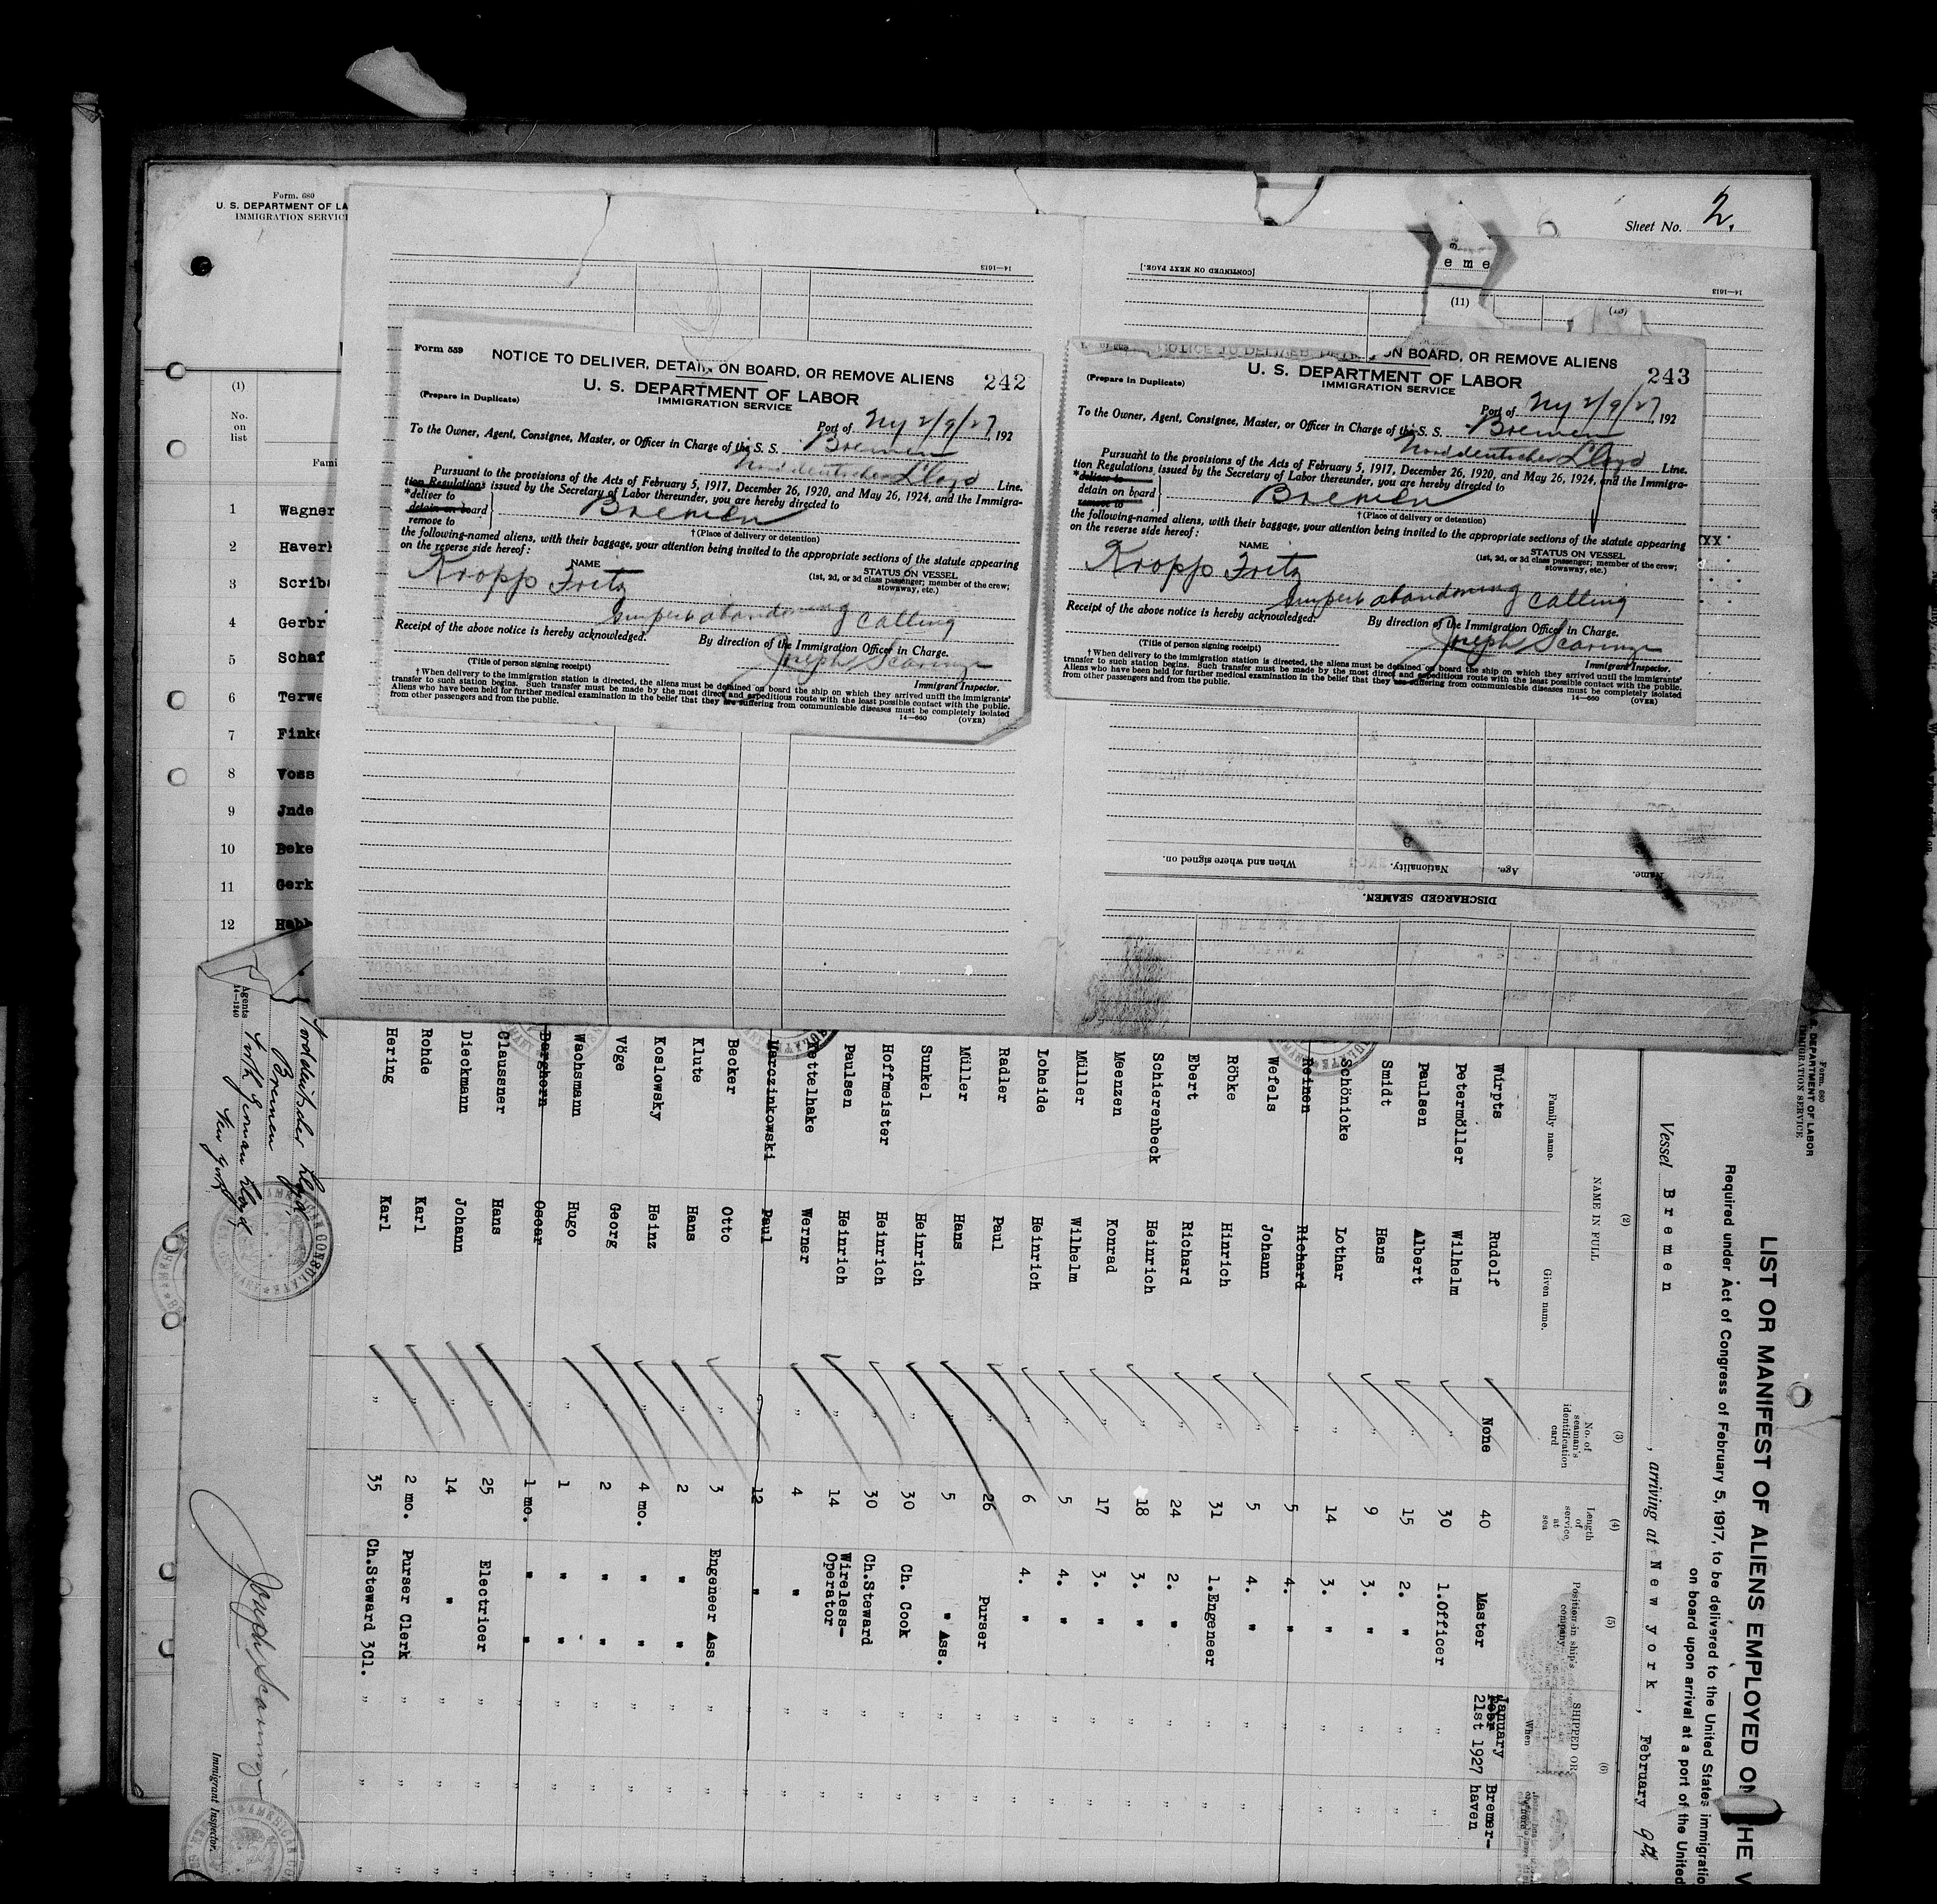 Form. 680
U. S. DEPARTMENT OF LA
IMMIGRATION SERVIC
Sheet No. 2.
(1)
No.
on
list
Fami
1 Wagner
2 Haverk
3 Scriba
4 Gerbr
5 Schaf
6 Terwe
7 Finke
8 Voss
9 Jnde
10 Beke
11 Gerk
12 Habb
14—1613
[CONTINUED ON NEXT PAGE.]
14—1613
eme
(11)
Form 559
NOTICE TO DELIVER, DETAIN ON BOARD, OR REMOVE ALIENS
242
U. S. DEPARTMENT OF LABOR
IMMIGRATION SERVICE
(Prepare in Duplicate)
Port of Ny 2/9/27, 192
To the Owner, Agent, Consignee, Master, or Officer in Charge of the S. S. Bremen
Norddeutscher Lloyd Line.
Pursuant to the provisions of the Acts of February 5, 1917, December 26, 1920, and May 26, 1924, and the Immigra-
tion Regulations issued by the Secretary of Labor thereunder, you are hereby directed to
*deliver to
detain on board
remove to
Bremen
† (Place of delivery or detention)
the following-named aliens, with their baggage, your attention being invited to the appropriate sections of the statute appearing
on the reverse side hereof:
NAME
STATUS ON VESSEL
(1st, 2d, or 3d class passenger; member of the crew;
stowaway, etc.)
Kropp Fritz
abandoning calling
Receipt of the above notice is hereby acknowledged.
By direction of the Immigration Officer in Charge.
Joseph Scaringe
(Title of person signing receipt)
Immigrant Inspector.
† When delivery to the immigration station is directed, the aliens must be detained on board the ship on which they arrived until the immigrants'
transfer to such station begins. Such transfer must be made by the most direct and expeditious route with the least possible contact with the public.
Aliens who have been held for further medical examination in the belief that they are suffering from communicable diseases must be completely isolated
from other passengers and from the public.
14—660
(OVER)
NOTICE TO DELIVER, DETAIN ON BOARD, OR REMOVE ALIENS
243
U. S. DEPARTMENT OF LABOR
IMMIGRATION SERVICE
(Prepare in Duplicate)
Port of Ny 2/9/27, 192
To the Owner, Agent, Consignee, Master, or Officer in Charge of the S. S. Bremen
Norddeutscher Lloyd Line.
Pursuant to the provisions of the Acts of February 5, 1917, December 26, 1920, and May 26, 1924, and the Immigra-
tion Regulations issued by the Secretary of Labor thereunder, you are hereby directed to
*deliver to
detain on board
remove to
Bremen
† (Place of delivery or detention)
the following-named aliens, with their baggage, your attention being invited to the appropriate sections of the statute appearing
on the reverse side hereof:
NAME
STATUS ON VESSEL
(1st, 2d, or 3d class passenger; member of the crew;
stowaway, etc.)
Kropp Fritz
abandoning calling
Receipt of the above notice is hereby acknowledged.
By direction of the Immigration Officer in Charge.
Joseph Scaringe
(Title of person signing receipt)
Immigrant Inspector.
† When delivery to the immigration station is directed, the aliens must be detained on board the ship on which they arrived until the immigrants'
transfer to such station begins. Such transfer must be made by the most direct and expeditious route with the least possible contact with the public.
Aliens who have been held for further medical examination in the belief that they are suffering from communicable diseases must be completely isolated
from other passengers and from the public.
14—660
(OVER)
DISCHARGED SEAMEN.
Name. Age. Nationality. When and where signed on.
Form 680
U. S. DEPARTMENT OF LABOR
IMMIGRATION SERVICE
LIST OR MANIFEST OF ALIENS EMPLOYED ON THE V
Required under Act of Congress of February 5, 1917, to be delivered to the United States immigratio
on board upon arrival at a port of the United
Vessel Bremen, arriving at New york, February 9th
(2) (3) (4) (5) (6)
NAME IN FULL
Family name. Given name.
No. of
seaman's
identification
card
Length
of
service
at
sea
Position in ship's
company
SHIPPED OR
When
Würpts Rudolf None 40 Master January 21st 1927 Bremer-
haven
Petermöller Wilhelm " 30 1.Officer " "
Paulsen Albert " 15 2. " " "
Smidt Hans " 9 3. " " "
Schönicke Lothar " 14 3. " " "
Reinen Richard " 5 4. " " "
Wefels Johann " 5 4. " " "
Röbke Hinrich " 31 1.Engeneer " "
Ebert Richard " 24 2. " " "
Schierenbeck Heinrich " 18 3. " " "
Meenzen Konrad " 17 3. " " "
Müller Wilhelm " 5 4. " " "
Loheide Heinrich " 6 4. " " "
Radler Paul " 26 Purser " "
Müller Hans " 5 " Ass. " "
Sunkel Heinrich " 30 Ch. Cook " "
Hoffmeister Heinrich " 30 Ch.Steward " "
Paulsen Heinrich " 14 Wireless-
Operator " "
Kettelhake Werner " 4 " " "
Marozinkowski Paul " 12 " " "
Becker Otto " 3 Engeneer Ass. " "
Klute Hans " 2 " " " "
Koslowsky Heinz " 4 mo. " " " "
Vöge Georg " 2 " " " "
Wachsmann Hugo " 1 " " " "
Berghorn Oscar " 1 mo. " " " "
Claussner Hans " 25 Electricer " "
Dieckmann Johann " 14 " " "
Rohde Karl " 2 mo. Purser Clerk " "
Hering Karl " 35 Ch.Steward 3Cl. " "
Norddeutscher Lloyd,
Bremen
Agents North German Lloyd,
New York
14—1240
Joseph Scaringe
Immigrant Inspector.